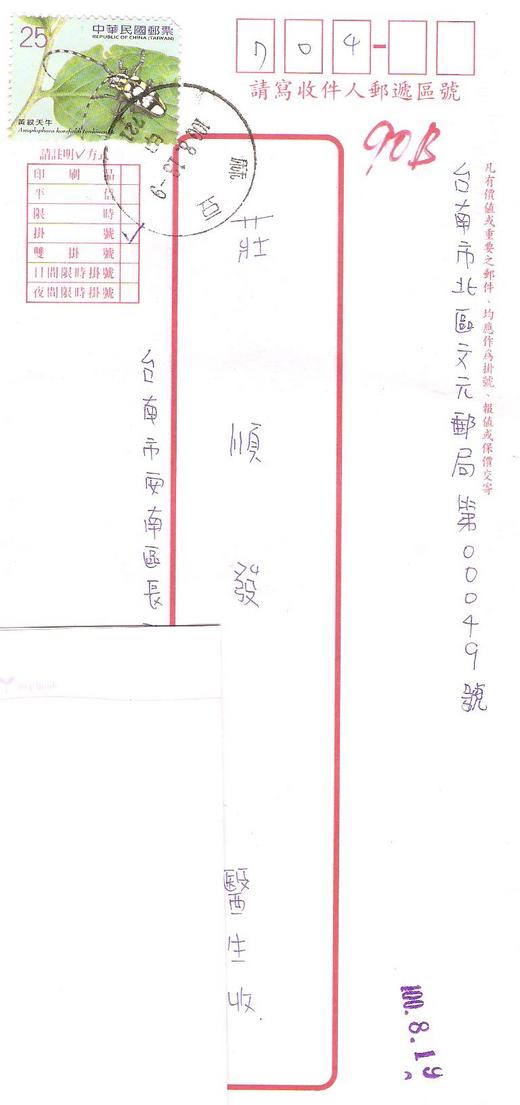 25
中華民國郵票
REPUBLIC OF CHINA (TAIWAN)
黃紋天牛
704
請寫收件人郵遞區號
90B
凡有價值或重要之郵件、均應作為掛號、報值或保價交寄
台南市北區文元郵局第00049號
莊順發醫生收
請註明✓方式
印刷品
平信
限時
掛號 ✓
雙掛號
日間限時掛號
夜間限時掛號
台南市安南區長
100.8.19